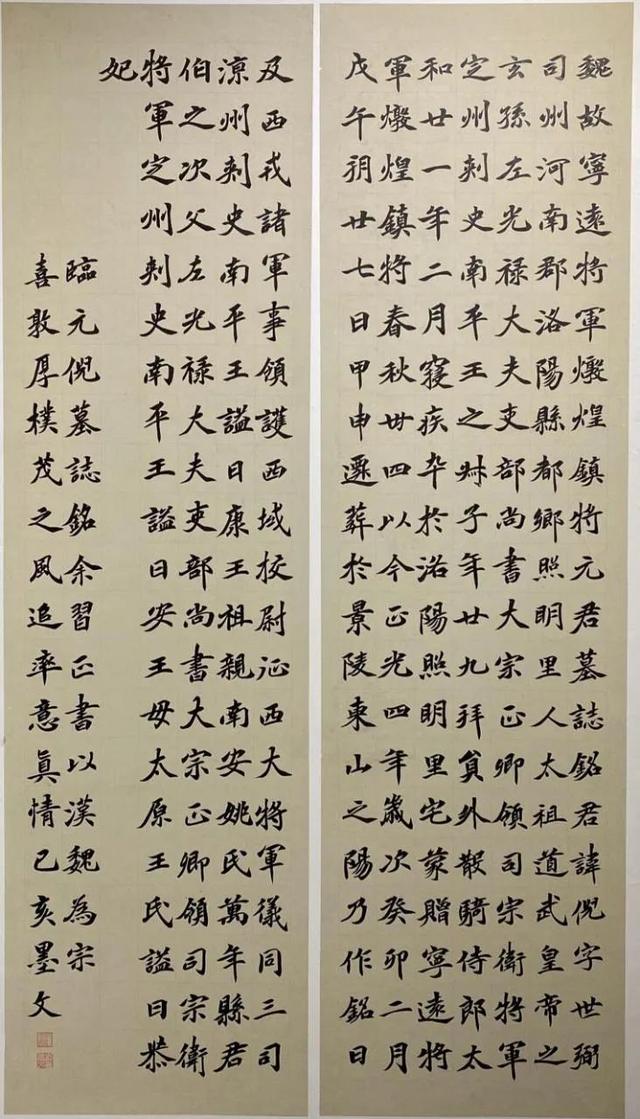 魏故寧遠將軍燉煌鎮將元君墓誌銘君諱倪字世弼
司州河南郡洛陽縣都鄉照明里人太祖道武皇帝之
玄孫左光祿大夫吏部尚書大宗正卿領司宗衛將軍
定州刾史南平王之叔子年廿九拜員外散騎侍郎太
和廿一年二月寑疾卒於洛陽照明里宅蒙贈寧遠將
軍燉煌鎮將春秋丗四以今正光四年歲次癸卯二月
戊午朔廿七日甲申遷葬於景陵東山之陽乃作銘曰
及西戎諸軍事領護西域校尉征西大將軍儀同三司
涼州刾史南平王謚曰康王祖親南安姚氏萬年縣君
伯之次父左光祿大夫吏部尚書大宗正卿領司宗衛
將軍定州刾史南平王謚曰安王母太原王氏謚曰恭
妃
臨元倪墓誌銘余習正書以漢魏為宗
喜敦厚樸茂之風追率意真情己亥墨文